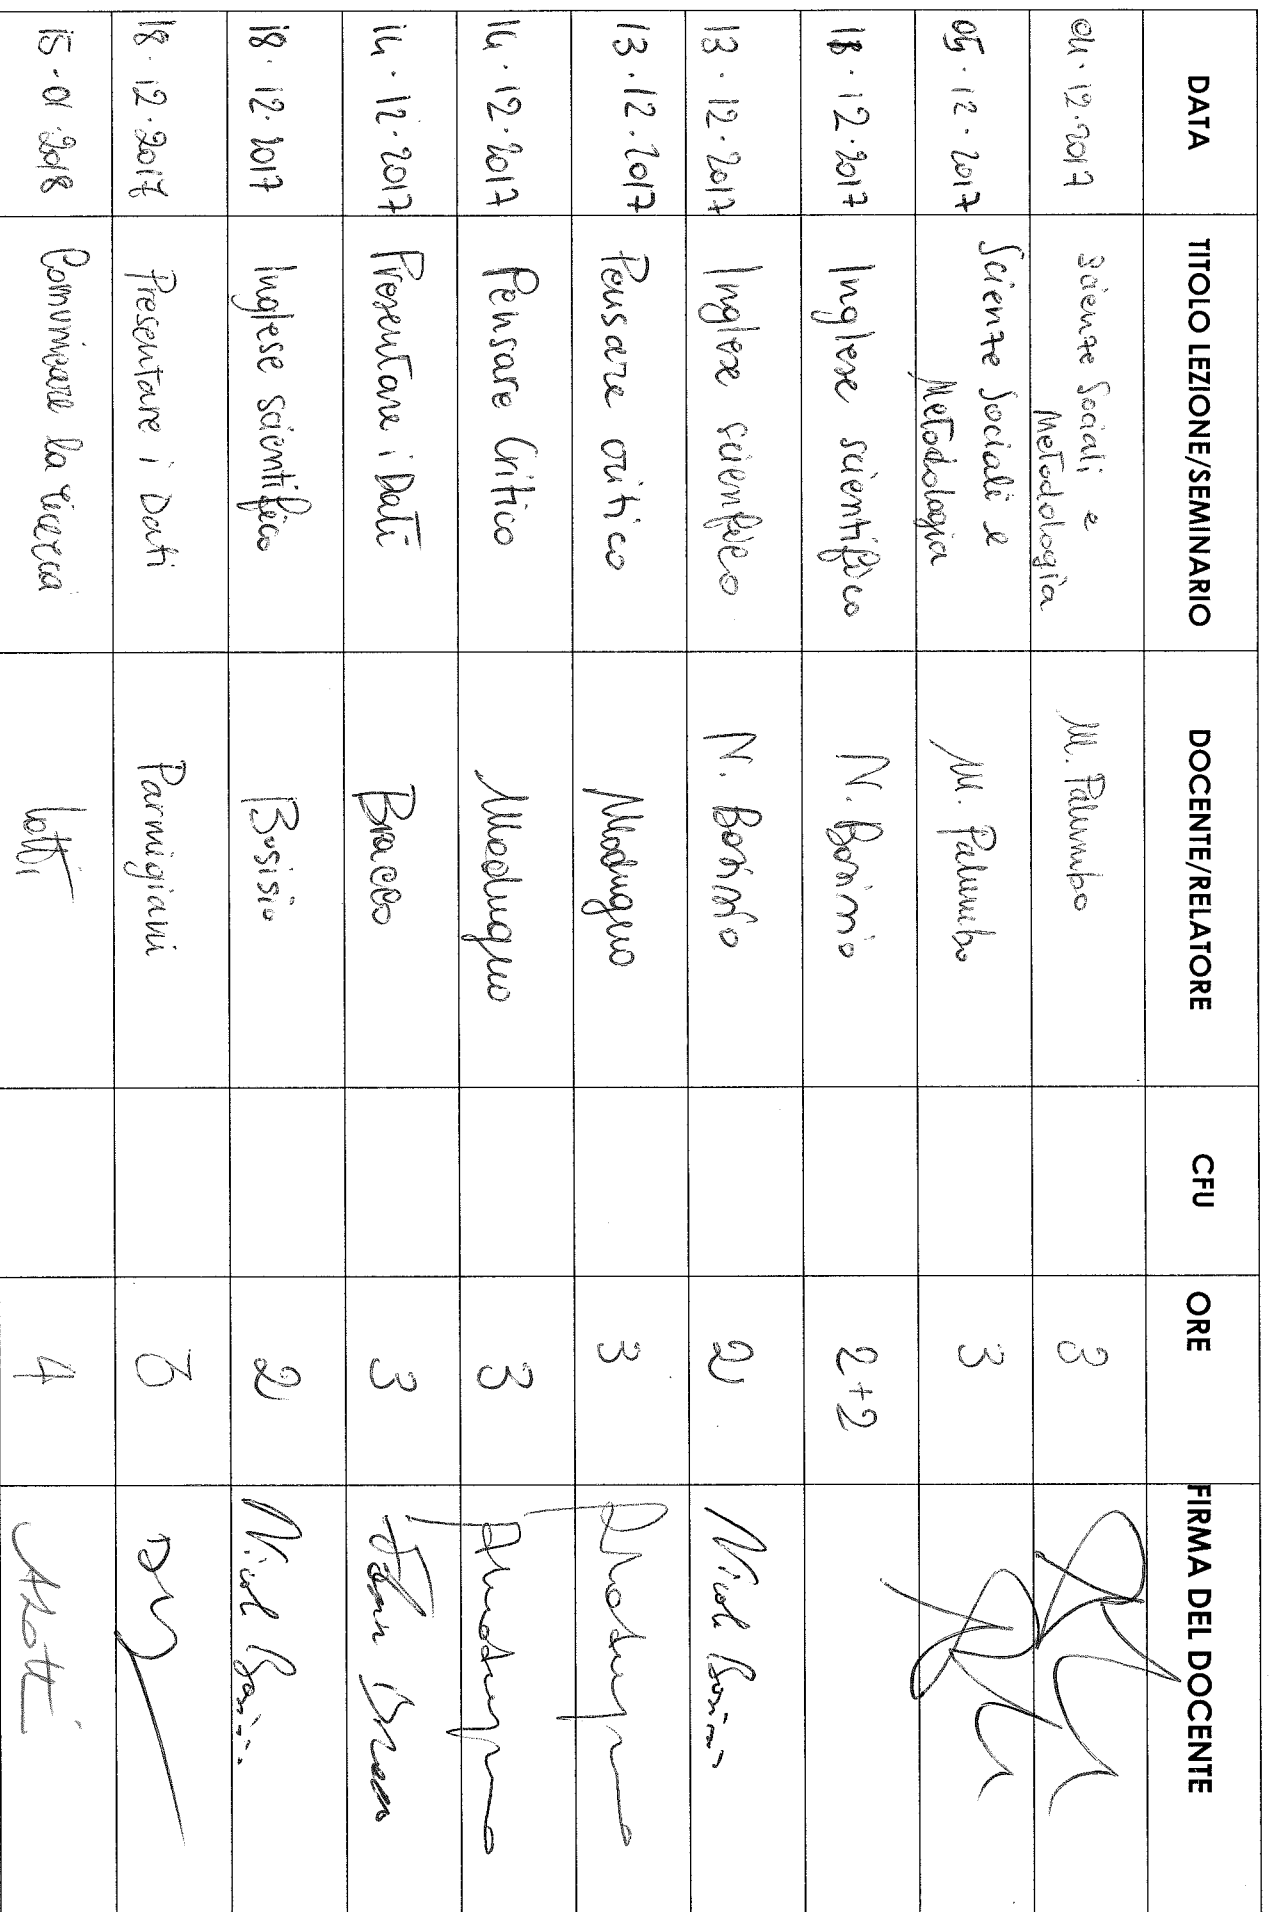 DATA TITOLO LEZIONE/SEMINARIO DOCENTE/RELATORE CFU ORE FIRMA DEL DOCENTE
04.12.2017 Scienze Sociali e Metodologia M. Palumbo 3
05.12.2017 Scienze Sociali e Metodologia M. Palumbo 3
13.12.2017 Inglese scientifico N. Bosisio 2+2
13.12.2017 Inglese scientifico N. Bosisio 2 Nicole Bosisio
13.12.2017 Pensare critico Modugno 3
14.12.2017 Pensare Critico Modugno 3
14.12.2017 Presentare i Dati Bracco 3
18.12.2017 Inglese scientifico Bosisio 2 Nicole Bosisio
18.12.2017 Presentare i Dati Parmigiani 3
15.01.2018 Comunicare la ricerca Lotti 4 ALotti